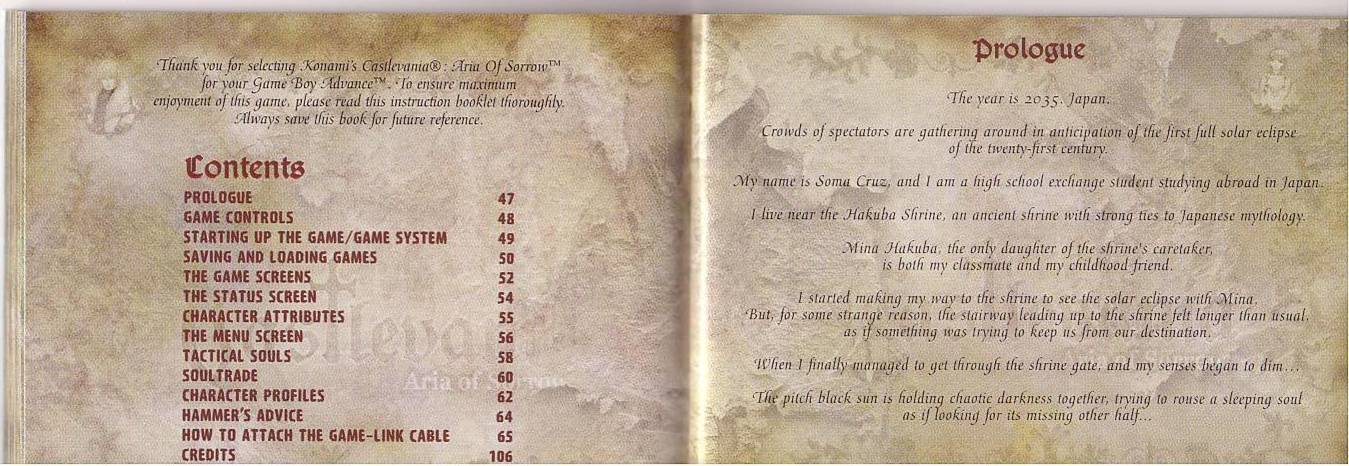 Thank you for selecting Konami's Castlevania®: Aria Of Sorrow™
for your Game Boy Advance™. To ensure maximum
enjoyment of this game, please read this instruction booklet thoroughly.
Always save this book for future reference.
Contents
PROLOGUE 47
GAME CONTROLS 48
STARTING UP THE GAME/GAME SYSTEM 49
SAVING AND LOADING GAMES 50
THE GAME SCREENS 52
THE STATUS SCREEN 54
CHARACTER ATTRIBUTES 55
THE MENU SCREEN 56
TACTICAL SOULS 58
SOULTRADE 60
CHARACTER PROFILES 62
HAMMER'S ADVICE 64
HOW TO ATTACH THE GAME-LINK CABLE 65
CREDITS 106
Aria of Sorrow
Prologue
The year is 2035. Japan.
Crowds of spectators are gathering around in anticipation of the first full solar eclipse
of the twenty-first century.
My name is Soma Cruz, and I am a high school exchange student studying abroad in Japan.
I live near the Hakuba Shrine, an ancient shrine with strong ties to Japanese mythology.
Mina Hakuba, the only daughter of the shrine's caretaker,
is both my classmate and my childhood friend.
I started making my way to the shrine to see the solar eclipse with Mina.
But, for some strange reason, the stairway leading up to the shrine felt longer than usual,
as if something was trying to keep us from our destination.
When I finally managed to get through the shrine gate, and my senses began to dim...
The pitch black sun is holding chaotic darkness together, trying to rouse a sleeping soul
as if looking for its missing other half...